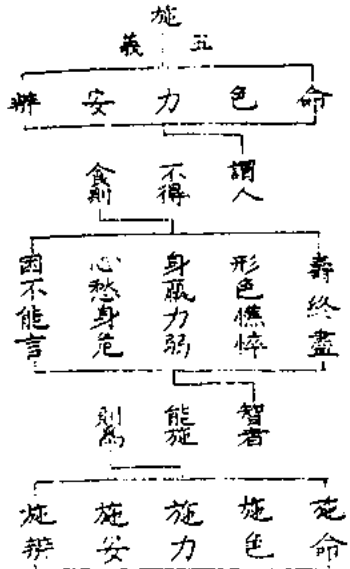 施
五義
命 色 力 安 辨
謂人 不得 食則
壽終盡 形色憔悴 身羸力弱 心愁身危 因不能言
智者 能施 則為
施命 施色 施力 施安 施辨